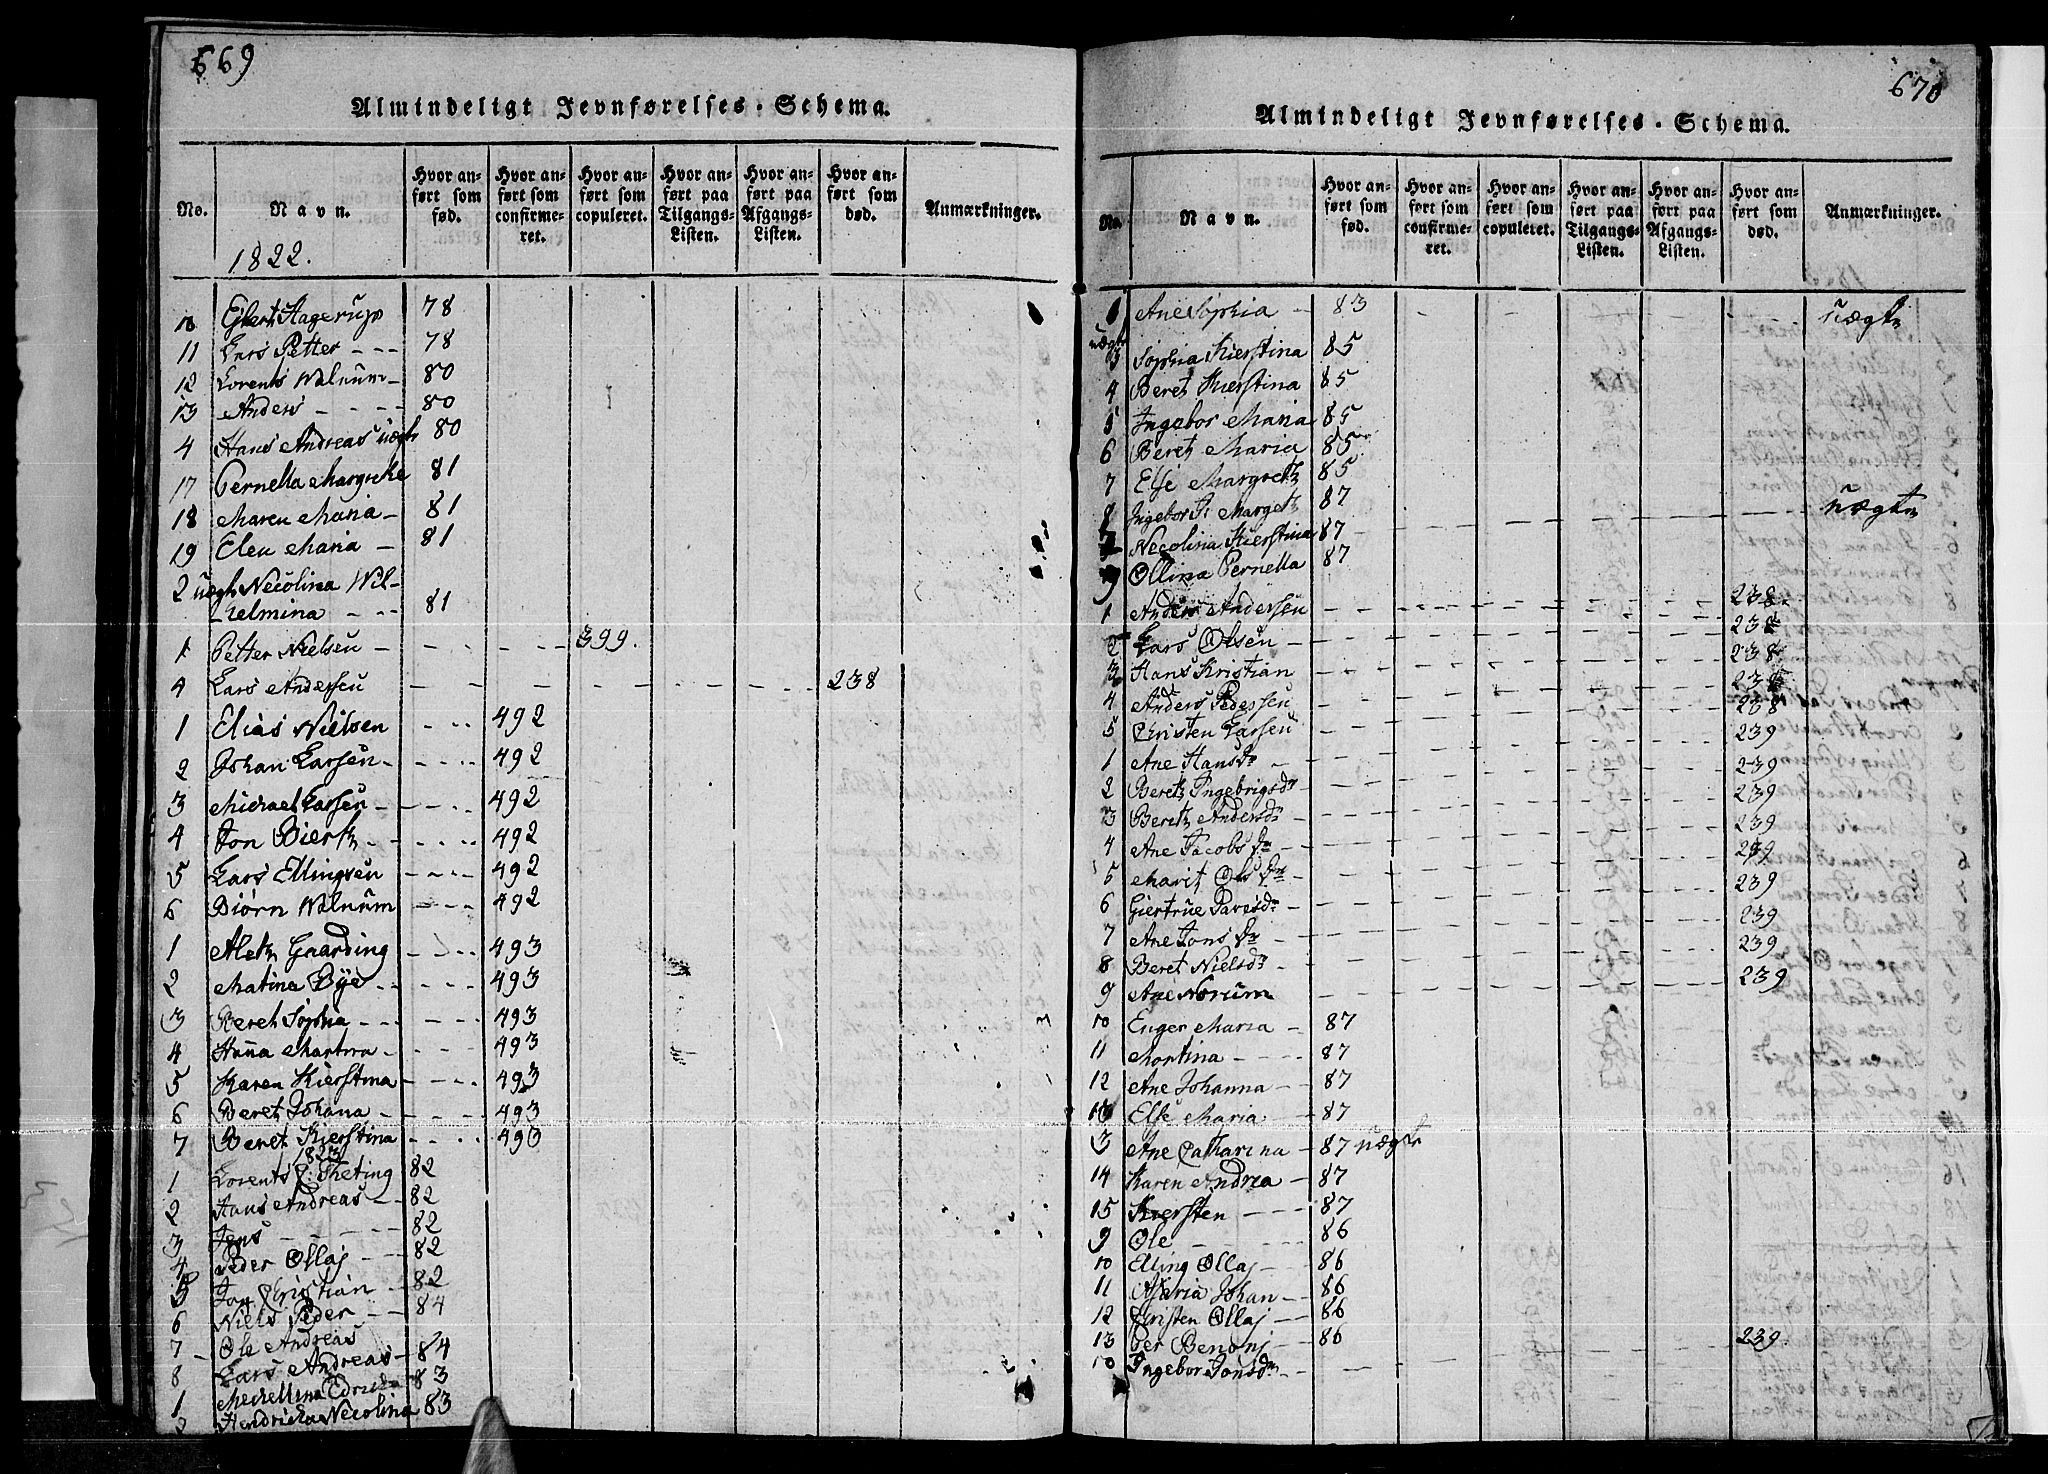 669
Almindeligt Jevnførelses-Schema.
No.
Navn.
Hvor anført som fød.
Hvor anført som confirmeret.
Hvor anført som copuleret.
Hvor anført paa Tilgangs-Listen.
Hvor anført paa Afgangs-Listen.
Hvor anført som død.
Anmærkninger.
1822.
10 Ejlert Hagerup 78
11 Lars Petter - - - 78
12 Lorents Walnum - 80
13 Anders - - - - 80
4 Hans Andreas uægte 80
17 Pernella Margrethe 81
18 Maren Maria - 81
19 Elen Maria - 81
2 uægte Necolina Wil-
helmina - - - 81
1 Petter Nielsen - - - - - - 399.
4 Lars Andersen - - - - - - - - 238
1 Elias Nielsen - - - 492
2 Johan Larsen - - - - 492
3 Michael Larsen - - - - 492
4 Jon Biertz - - - - - 492
5 Lars Ellingsen - - - 492
6 Biørn Walnum - - - 492
1 Aletz Gaarding - - - 493
2 Matina Bye - - - - 493
3 Beret Sophia - - - - - 493
4 Hanna Martina - - - - 493
5 Karen Kierstina - - - 493
6 Beret Johana - - - - 493
7 Beret Kierstina - - - - 493
1823
1 Lorents C: Theting 82
2 Hans Andreas - - 82
3 Jens - - - - - 82
4 Peder Ollaj - - - 82
5 Jon Christian - - 82
6 Niels Peder - - 84
7 Ole Andreas
8 Lars Andreas - 84
1 Mechellina 83
2 Hendricka Necolina 83
670
Almindeligt Jevnførelses-Schema.
No.
Navn.
Hvor anført som fød.
Hvor anført som confirmeret.
Hvor anført som copuleret.
Hvor anført paa Tilgangs-Listen.
Hvor anført paa Afgangs-Listen.
Hvor anført som død.
Anmærkninger.
1 Ane Sophia - - 83 - - - - - uægte
uægte
3 Sophia Kierstina 85
4 Beret Kierstina 85
5 Ingebor Maria 85
6 Beret Maria 85
7 Else Margretz 85
8 Ingebor Margetz 87
Necolina Kierstina 87 - - - - - - uægte
9 Ollina Pernella 87
1 Anders Andersen - - - - - - 238
2 Lars Olsen - - - - - - - 238
3 Hans Kristian - - - - - - 238
4 Anders Pedersen - - - - - - 238
5 Christen Larsen - - - - - - 238
1 Ane Hansdr - - - - - - - 239
2 Beretz Ingebrigsdr - - - - - 239
3 Beretz Andersdr - - - - - - 239
4 Ane Jacobs dr - - - - - - 239
5 Marit Ols dr - - - - - - 239
6 Giertrue Paresdr - - - - - - 239
7 Ane Jons dr - - - - - - 239
8 Beret Nielsdr - - - - - - 239
9 Ane Norum - - - - - - 239
10 Enger Maria - 87
11 Mortina - - - - 87
12 Ane Johanna - - 87
13 Else Maria - - - 87
3 Ane Catharina - 87 uægte
14 Karen Andrea - 87
15 Kiersten - - - - 87
9 Ole - - - - - - 86
10 Elling Ollaj - - - 86
11 Johan - - 86
12 Christen Ollaj - - 86
13 Per Benonj - - - 86
10 Ingebor Jonsdr - - - - - - 239.